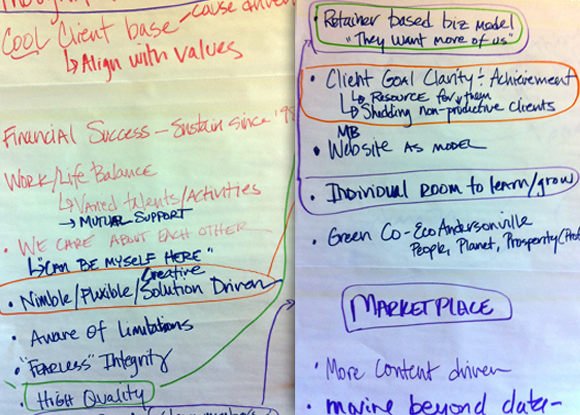 Cool Client base - cause driven
↳ Align with values
Financial Success - Sustain since '98
Work/Life Balance
↳ Varied talents/Activities
→ MUTUAL SUPPORT
• WE CARE ABOUT EACH OTHER
↳ "CAN BE MYSELF HERE"
Creative
• Nimble/Fluxible/Solution Driven
• Aware of Limitations
• "FEARLESS" Integrity
• HIGH QUALITY
• Retainer based biz model
"They want more of us"
• Client GOAL CLARITY & Achievement
↳ RESOURCE for them
↳ Shedding non-productive clients
MB
• Website AS MODEL
• INDIVIDUAL ROOM to learn/grow
• Green Co - Eco Andersonville
People, Planet, Prosperity
MARKETPLACE
• More Content driven
• moving beyond data-